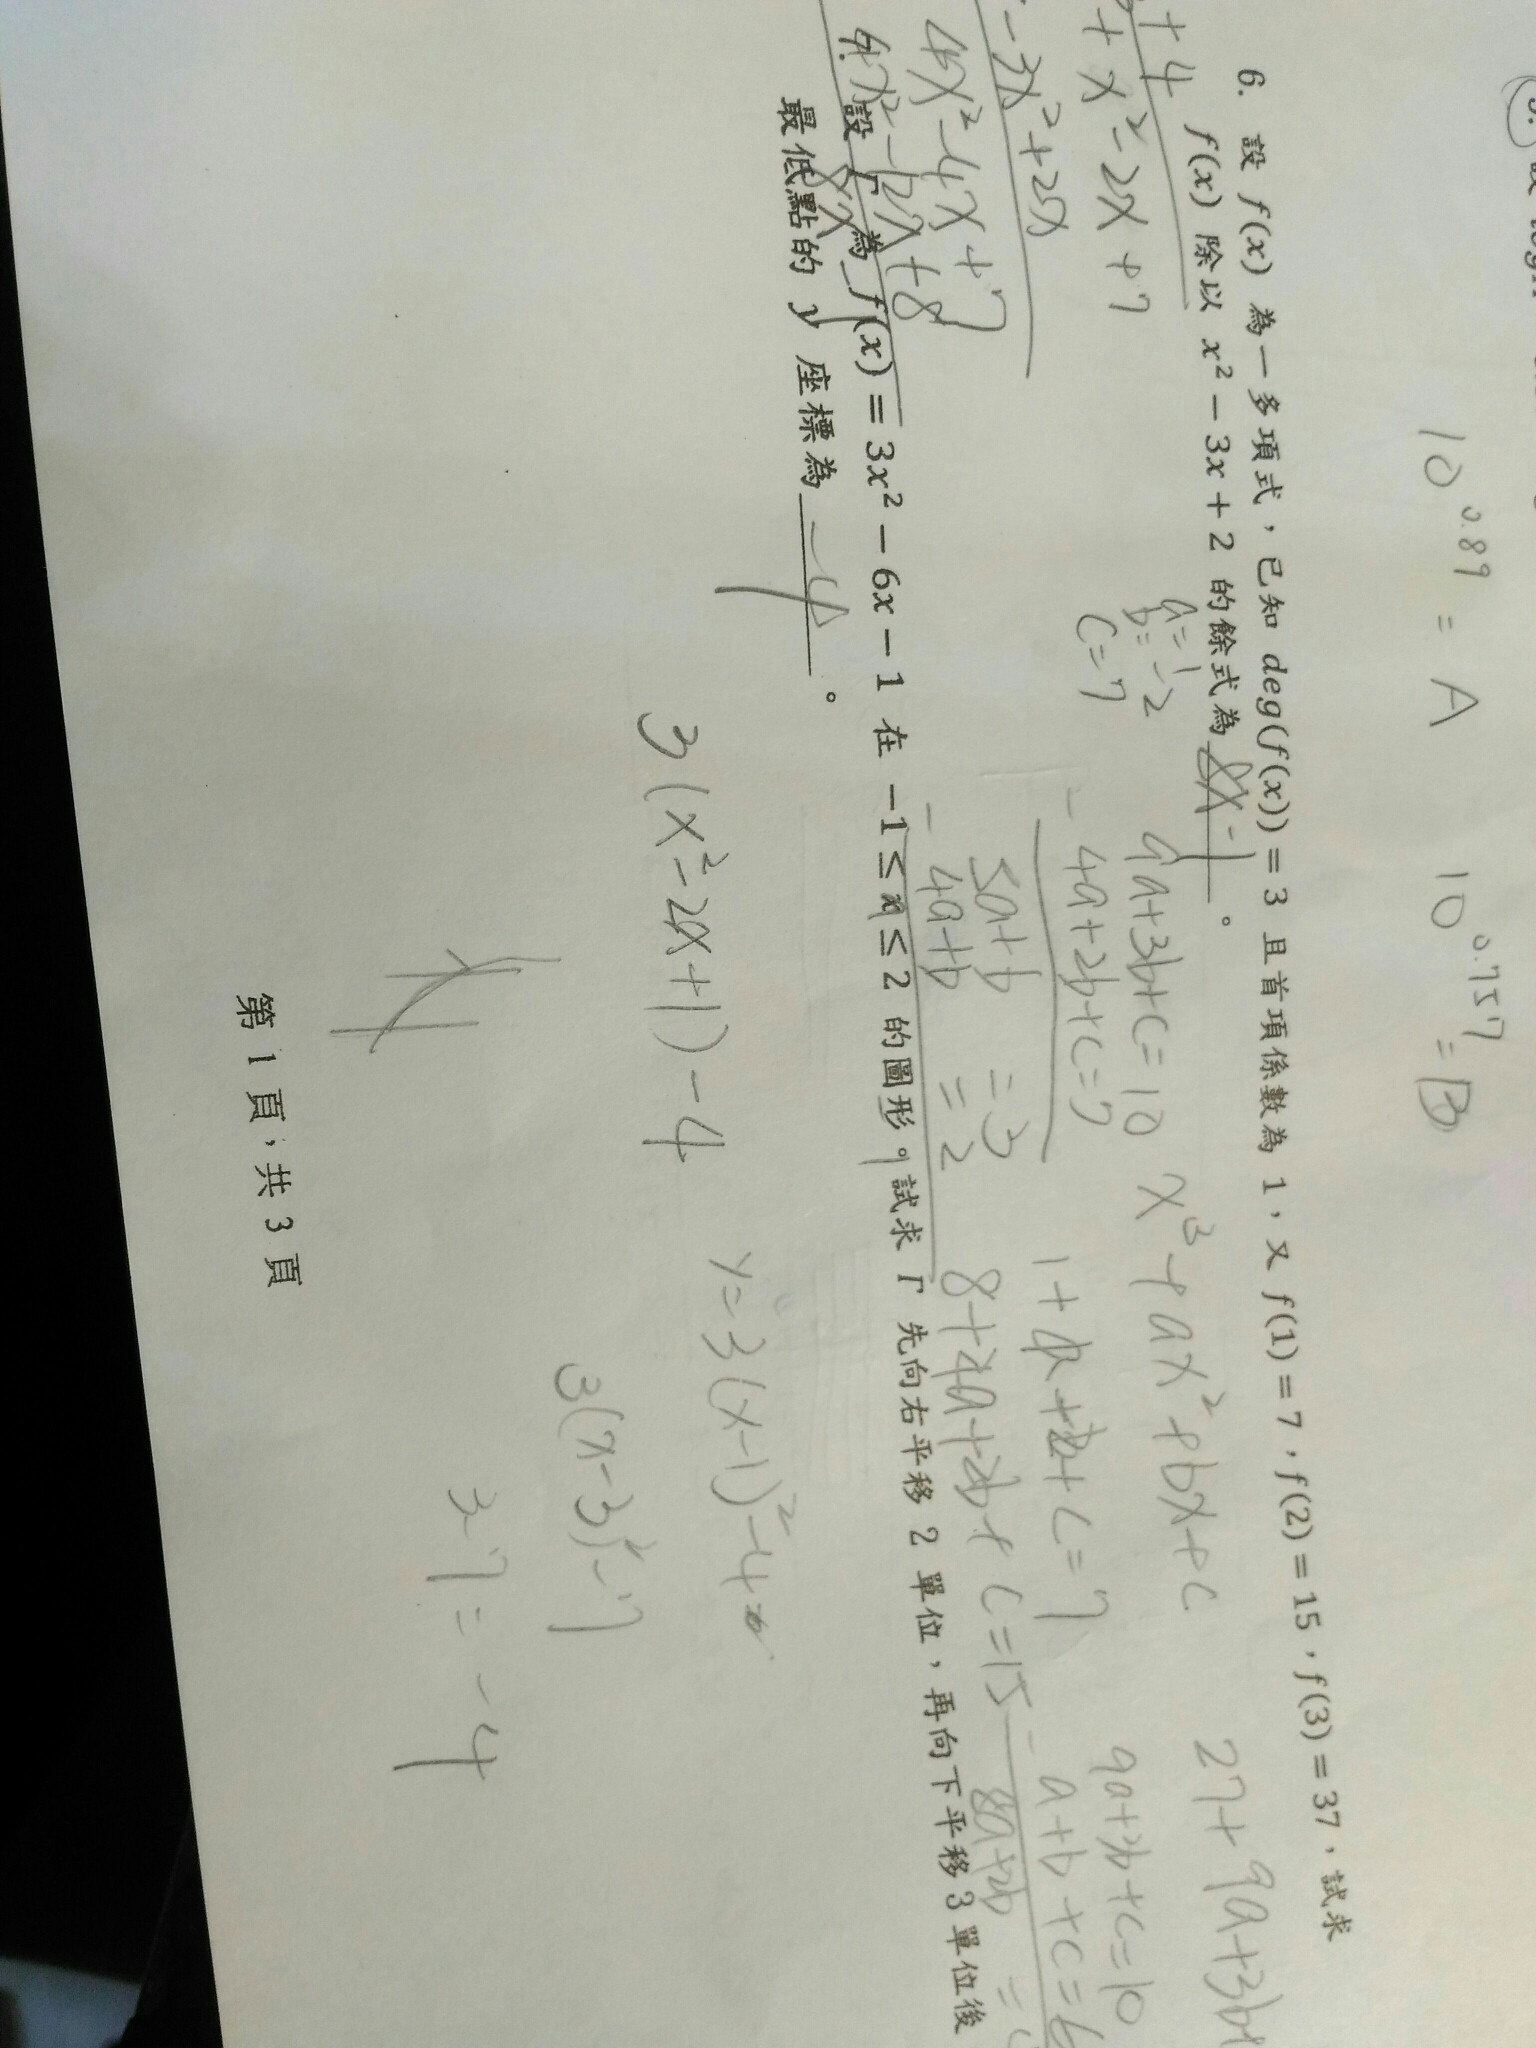 10^0.89 = A
10^0.757 = B
6. 設 f(x) 為一多項式，已知 deg(f(x)) = 3 且首項係數為 1，又 f(1) = 7，f(2) = 15，f(3) = 37，試求
f(x) 除以 x² − 3x + 2 的餘式為 8x-1 。
+4
+ x² - 2x + 7
- 3x² + 2x
4x² - 4x + 7
4x² - 12x + 8
8x
a=1
b=-2
c=7
9a+3b+c=10
- 4a+2b+c=7
5a+b =3
- 4a+b =2
x³ + ax² + bx + c
1+a+b+c=7
8+4a+2b+c=15
27+9a+3b+
9a+3b+c=10
- a+b+c=6
8a+2b =
設 Γ 為 f(x) = 3x² − 6x − 1 在 −1 ≤ x ≤ 2 的圖形。試求 Γ 先向右平移 2 單位，再向下平移 3 單位後
最低點的 y 座標為 -4 。
3(x²-2x+1)-4
y=3(x-1)²-4
3(x-3)²-7
3-7=-4
第 1 頁，共 3 頁